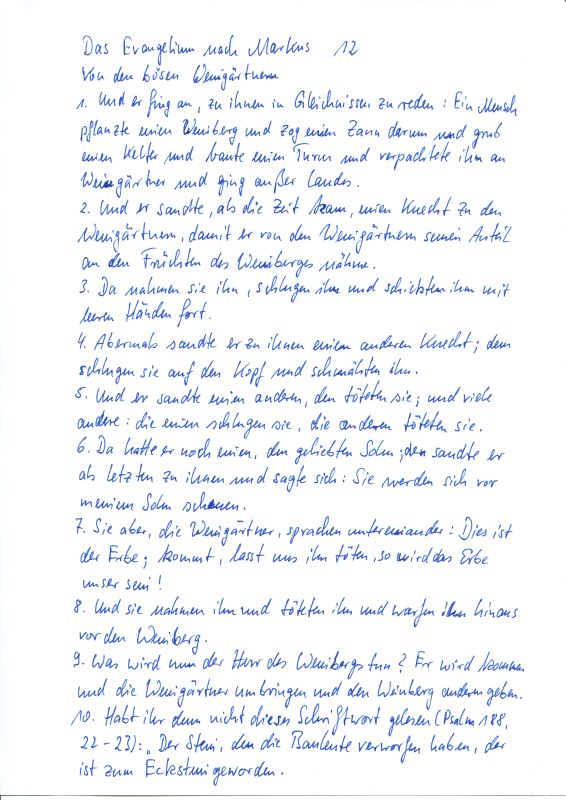 Das Evangelium nach Markus 12
Von den bösen Weingärtnern
1. Und er fing an, zu ihnen in Gleichnissen zu reden: Ein Mensch
pflanzte einen Weinberg und zog einen Zaun darum und grub
einen Kelter und baute einen Turm und verpachtete ihn an
Weingärtner und ging außer Landes.
2. Und er sandte, als die Zeit kam, einen Knecht zu den
Weingärtnern, damit er von den Weingärtnern seinen Anteil
an den Früchten des Weinberges nähme.
3. Da nahmen sie ihn, schlugen ihn und schickten ihn mit
leeren Händen fort.
4. Abermals sandte er zu ihnen einen anderen Knecht; dem
schlugen sie auf den Kopf und schmähten ihn.
5. Und er sandte einen anderen, den töteten sie; und viele
andere: die einen schlugen sie, die anderen töteten sie.
6. Da hatte er noch einen, den geliebten Sohn; den sandte er
als letzten zu ihnen und sagte sich: Sie werden sich vor
meinem Sohn scheuen.
7. Sie aber, die Weingärtner, sprachen untereinander: Dies ist
der Erbe; kommt, lasst uns ihn töten, so wird das Erbe
unser sein!
8. Und sie nahmen ihn und töteten ihn und warfen ihn hinaus
vor den Weinberg.
9. Was wird nun der Herr des Weinbergs tun? Er wird kommen
und die Weingärtner umbringen und den Weinberg andern geben.
10. Habt ihr denn nicht dieses Schriftwort gelesen (Psalm 188,
22-23): „Der Stein, den die Bauleute verworfen haben, der
ist zum Eckstein geworden.